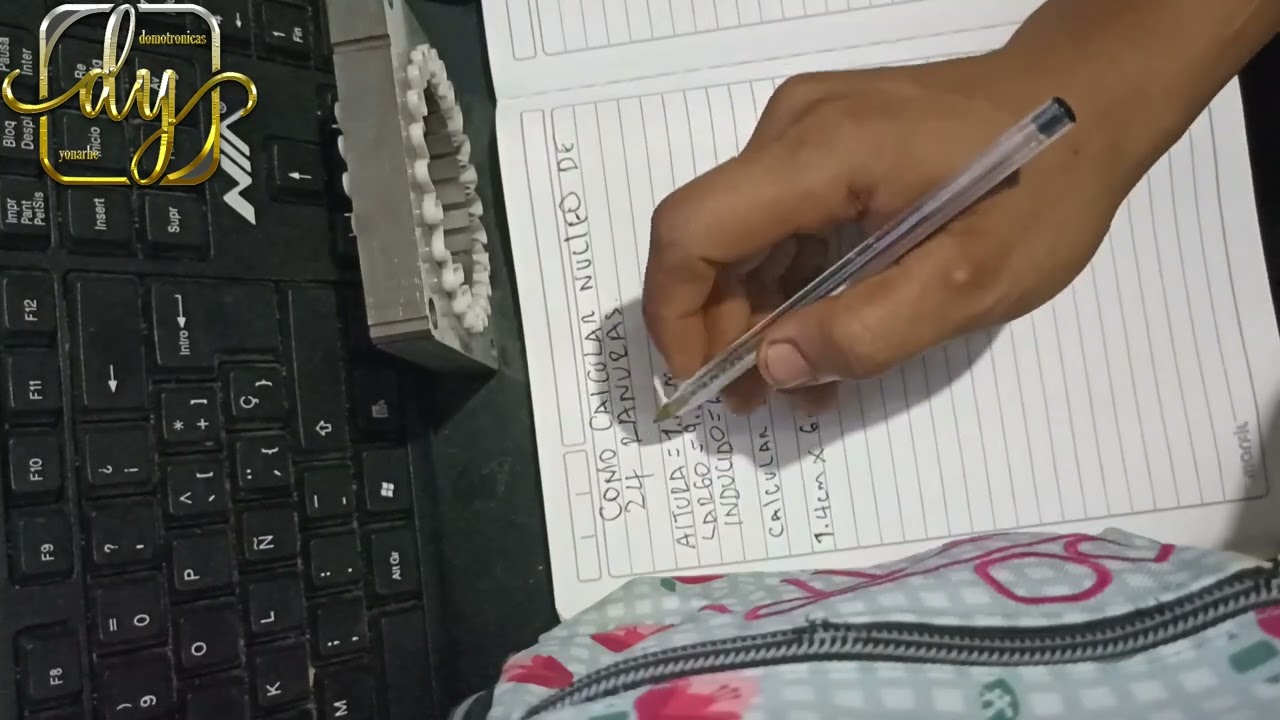 domotronicas
dy
yonarhe
COMO CALCULAR NUCLEO DE
24 RANURAS
ALTURA = 1.
LARGO = 9.
INDUCIDO =
CALCULAR
1.4cm X 6
norma
Pausa
Inter
Bloq
Despl
Inicio
Fin
1
Impr
Pant
PetSis
Insert
Supr
F12
F11
F10
F9
F8
Intro
Alt Gr
Ç }
* + ]
^ ` [
¨ ´ {
¿ ¡
? '
= 0
) 9
P
O
Ñ
L
K
M
_ -
: .
; ,